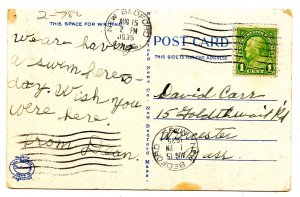 2-786
THIS SPACE FOR WRITING
NEW BEDFORD
AUG 15
2 PM
1935
POST CARD
THIS SIDE IS FOR THE ADDRESS
1 CENT 1
we are having
a swim here to-
day. Wish you
were here.
From Dean.
David Carr
15 Goldthwait Rd
Worcester
Mass.